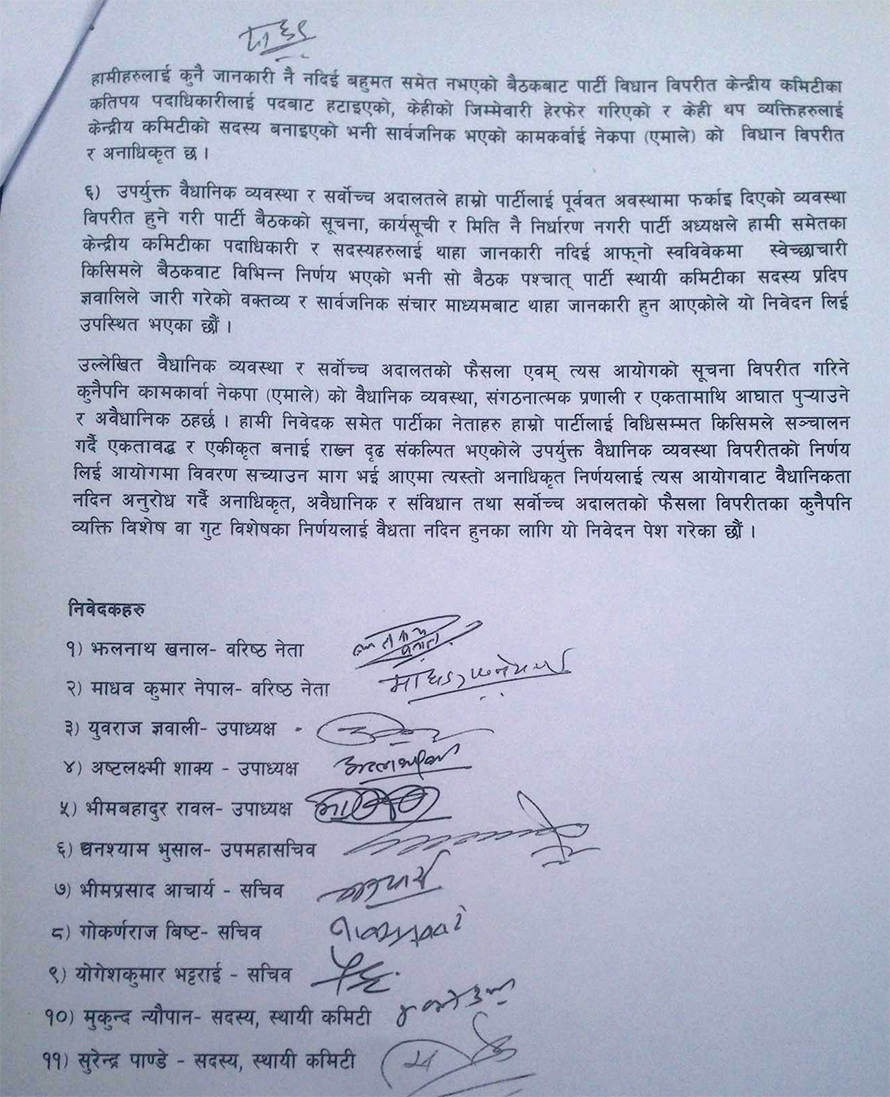 हामीहरुलाई कुनै जानकारी नै नदिई बहुमत समेत नभएको बैठकबाट पार्टी विधान विपरीत केन्द्रीय कमिटीका
कतिपय पदाधिकारीलाई पदबाट हटाइएको, केहीको जिम्मेवारी हेरफेर गरिएको र केही थप व्यक्तिहरुलाई
केन्द्रीय कमिटीको सदस्य बनाइएको भनी सार्वजनिक भएको कामकर्वाई नेकपा (एमाले) को विधान विपरीत
र अनाधिकृत छ ।
६) उपर्युक्त वैधानिक व्यवस्था र सर्वोच्च अदालतले हाम्रो पार्टीलाई पूर्ववत अवस्थामा फर्काइ दिएको व्यवस्था
विपरीत हुने गरी पार्टी बैठकको सूचना, कार्यसूची र मिति नै निर्धारण नगरी पार्टी अध्यक्षले हामी समेतका
केन्द्रीय कमिटीका पदाधिकारी र सदस्यहरुलाई थाहा जानकारी नदिई आफ्नो स्वविवेकमा स्वेच्छाचारी
किसिमले बैठकवाट विभिन्न निर्णय भएको भनी सो बैठक पश्चात् पार्टी स्थायी कमिटीका सदस्य प्रदिप
ज्ञवालिले जारी गरेको वक्तव्य र सार्वजनिक संचार माध्यमबाट थाहा जानकारी हुन आएकोले यो निवेदन लिई
उपस्थित भएका छौं ।
उल्लेखित वैधानिक व्यवस्था र सर्वोच्च अदालतको फैसला एवम् त्यस आयोगको सूचना विपरीत गरिने
कुनैपनि कामकार्वा नेकपा (एमाले) को वैधानिक व्यवस्था, संगठनात्मक प्रणाली र एकतामाथि आघात पुऱ्याउने
र अवैधानिक ठहर्छ । हामी निवेदक समेत पार्टीका नेताहरु हाम्रो पार्टीलाई विधिसम्मत किसिमले सञ्चालन
गर्दै एकतावद्ध र एकीकृत बनाई राख्न दृढ संकल्पित भएकोले उपर्युक्त वैधानिक व्यवस्था विपरीतको निर्णय
लिई आयोगमा विवरण सच्याउन माग भई आएमा त्यस्तो अनाधिकृत निर्णयलाई त्यस आयोगवाट वैधानिकता
नदिन अनुरोध गर्दै अनाधिकृत, अवैधानिक र संविधान तथा सर्वोच्च अदालतको फैसला विपरीतका कुनैपनि
व्यक्ति विशेष वा गुट विशेषका निर्णयलाई वैधता नदिन हुनका लागि यो निवेदन पेश गरेका छौं ।
निवेदकहरु
१) झलनाथ खनाल- वरिष्ठ नेता
२) माधव कुमार नेपाल- वरिष्ठ नेता
३) युवराज ज्ञवाली- उपाध्यक्ष
४) अष्टलक्ष्मी शाक्य - उपाध्यक्ष
५) भीमबहादुर रावल- उपाध्यक्ष
६) घनश्याम भुसाल- उपमहासचिव
७) भीमप्रसाद आचार्य - सचिव
८) गोकर्णराज बिष्ट- सचिव
९) योगेशकुमार भट्टराई - सचिव
१०) मुकुन्द न्यौपान- सदस्य, स्थायी कमिटी
११) सुरेन्द्र पाण्डे - सदस्य, स्थायी कमिटी